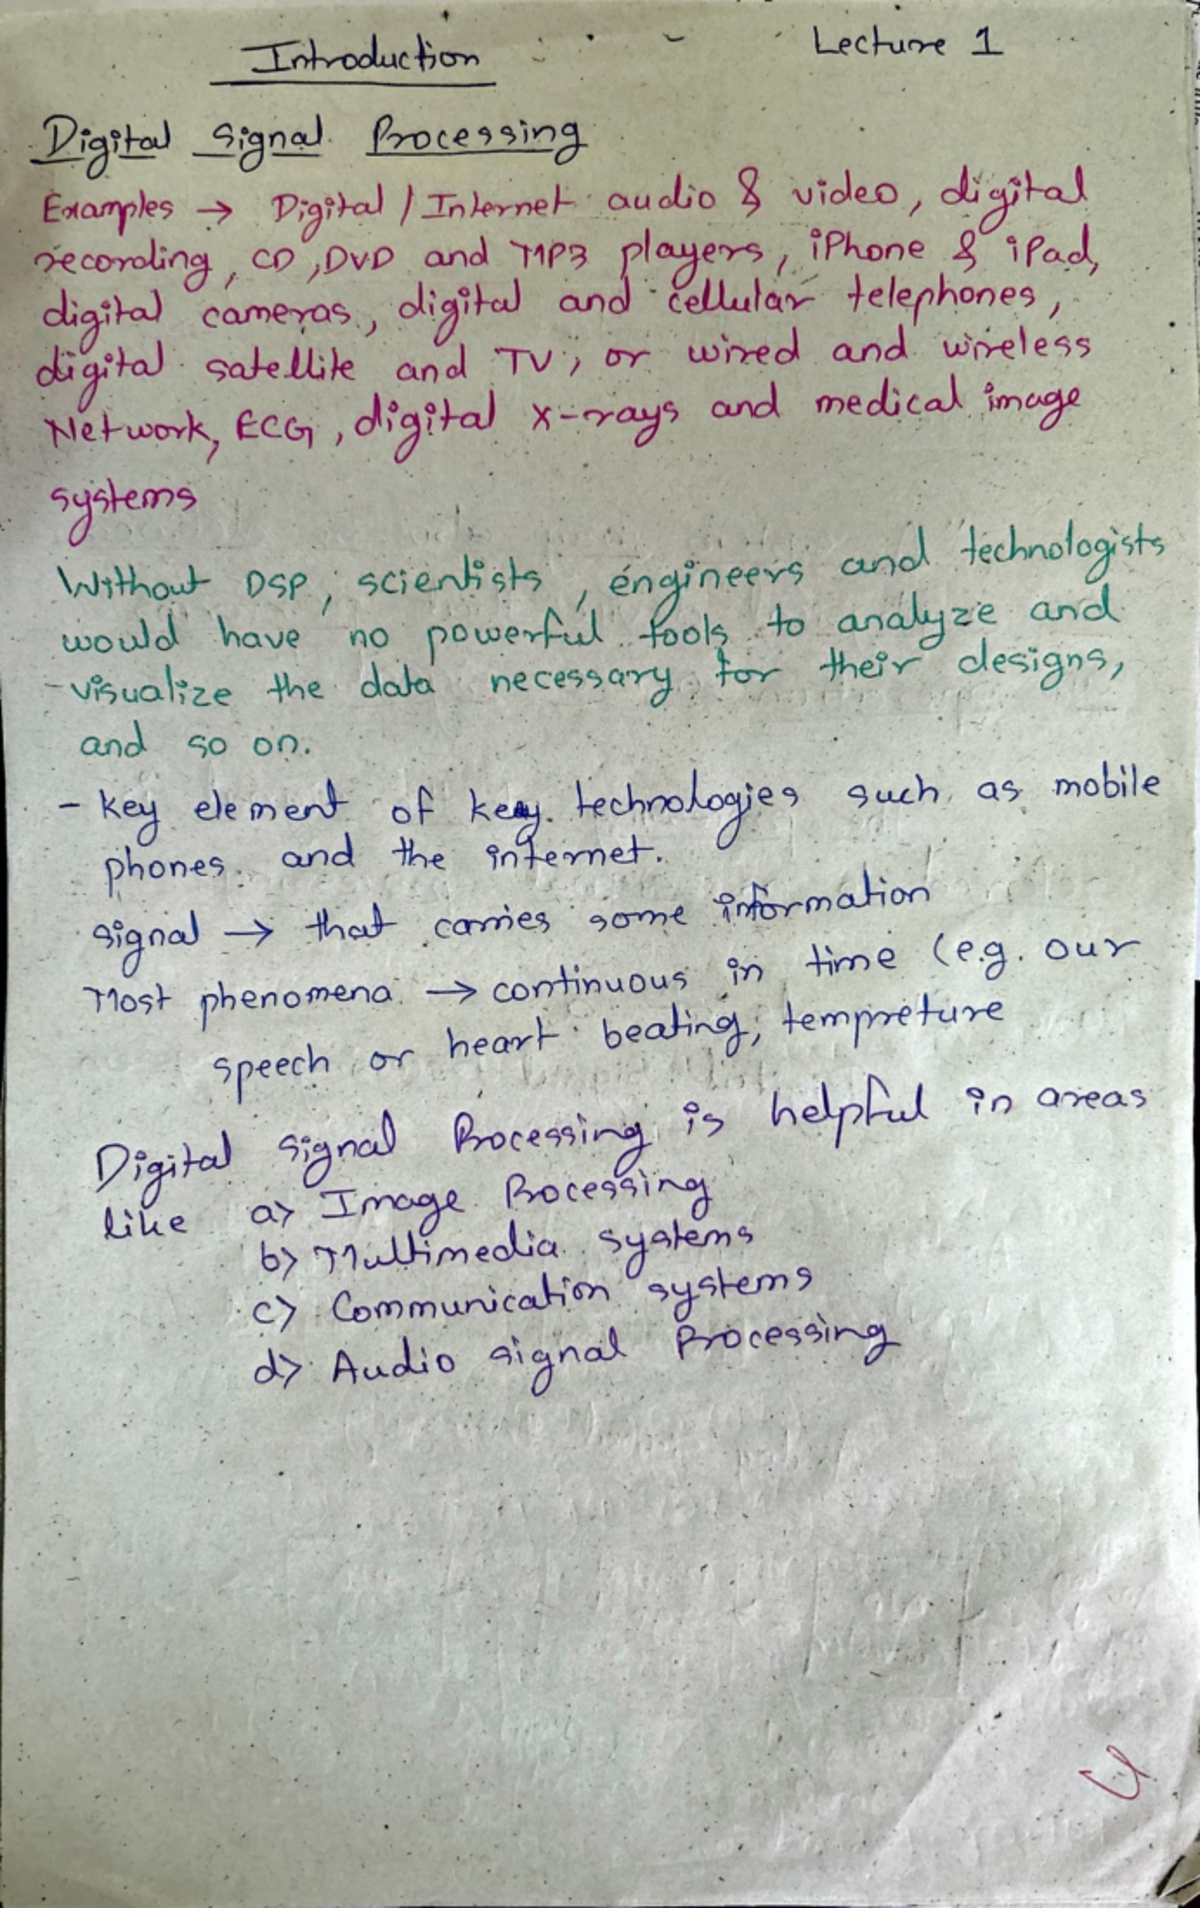 Introduction
Lecture 1
Digital Signal Processing
Examples → Digital / Internet audio & video, digital
recording, CD, DVD and MP3 players, iPhone & iPad,
digital cameras, digital and cellular telephones,
digital satellite and TV, or wired and wireless
Network, ECG, digital x-rays and medical image
systems
Without DSP, scientists, engineers and technologists
would have no powerful tools to analyze and
visualize the data necessary for their designs,
and so on.
- key element of key technologies such as mobile
phones and the internet.
signal → that carries some information
Most phenomena → continuous in time (e.g. our
speech or heart beating, tempreture
Digital signal Processing is helpful in areas
like a) Image Processing
b) Multimedia systems
c) Communication systems
d) Audio signal Processing